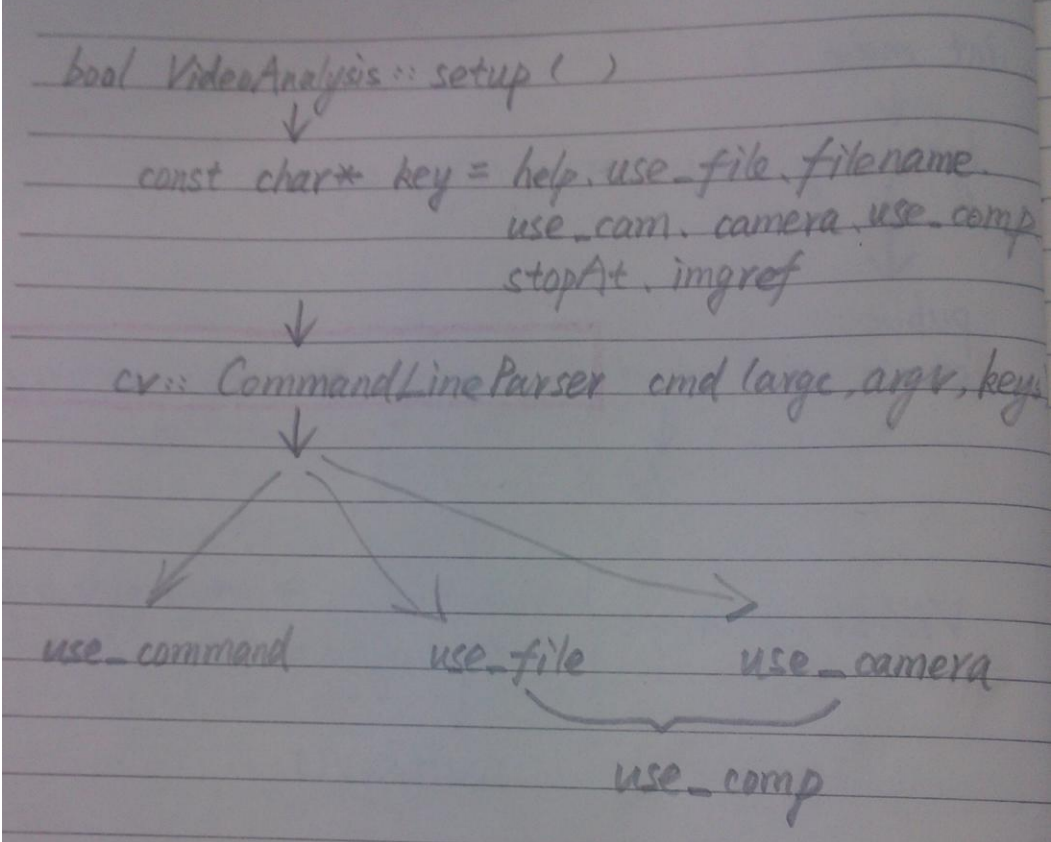 bool VideoAnalysis :: setup ( )
const char* key = help、use_file、filename、
use_cam、camera、use_comp
stopAt、imgref
cv:: CommandLineParser cmd (argc, argv, keys
use_command use_file use_camera
use_comp